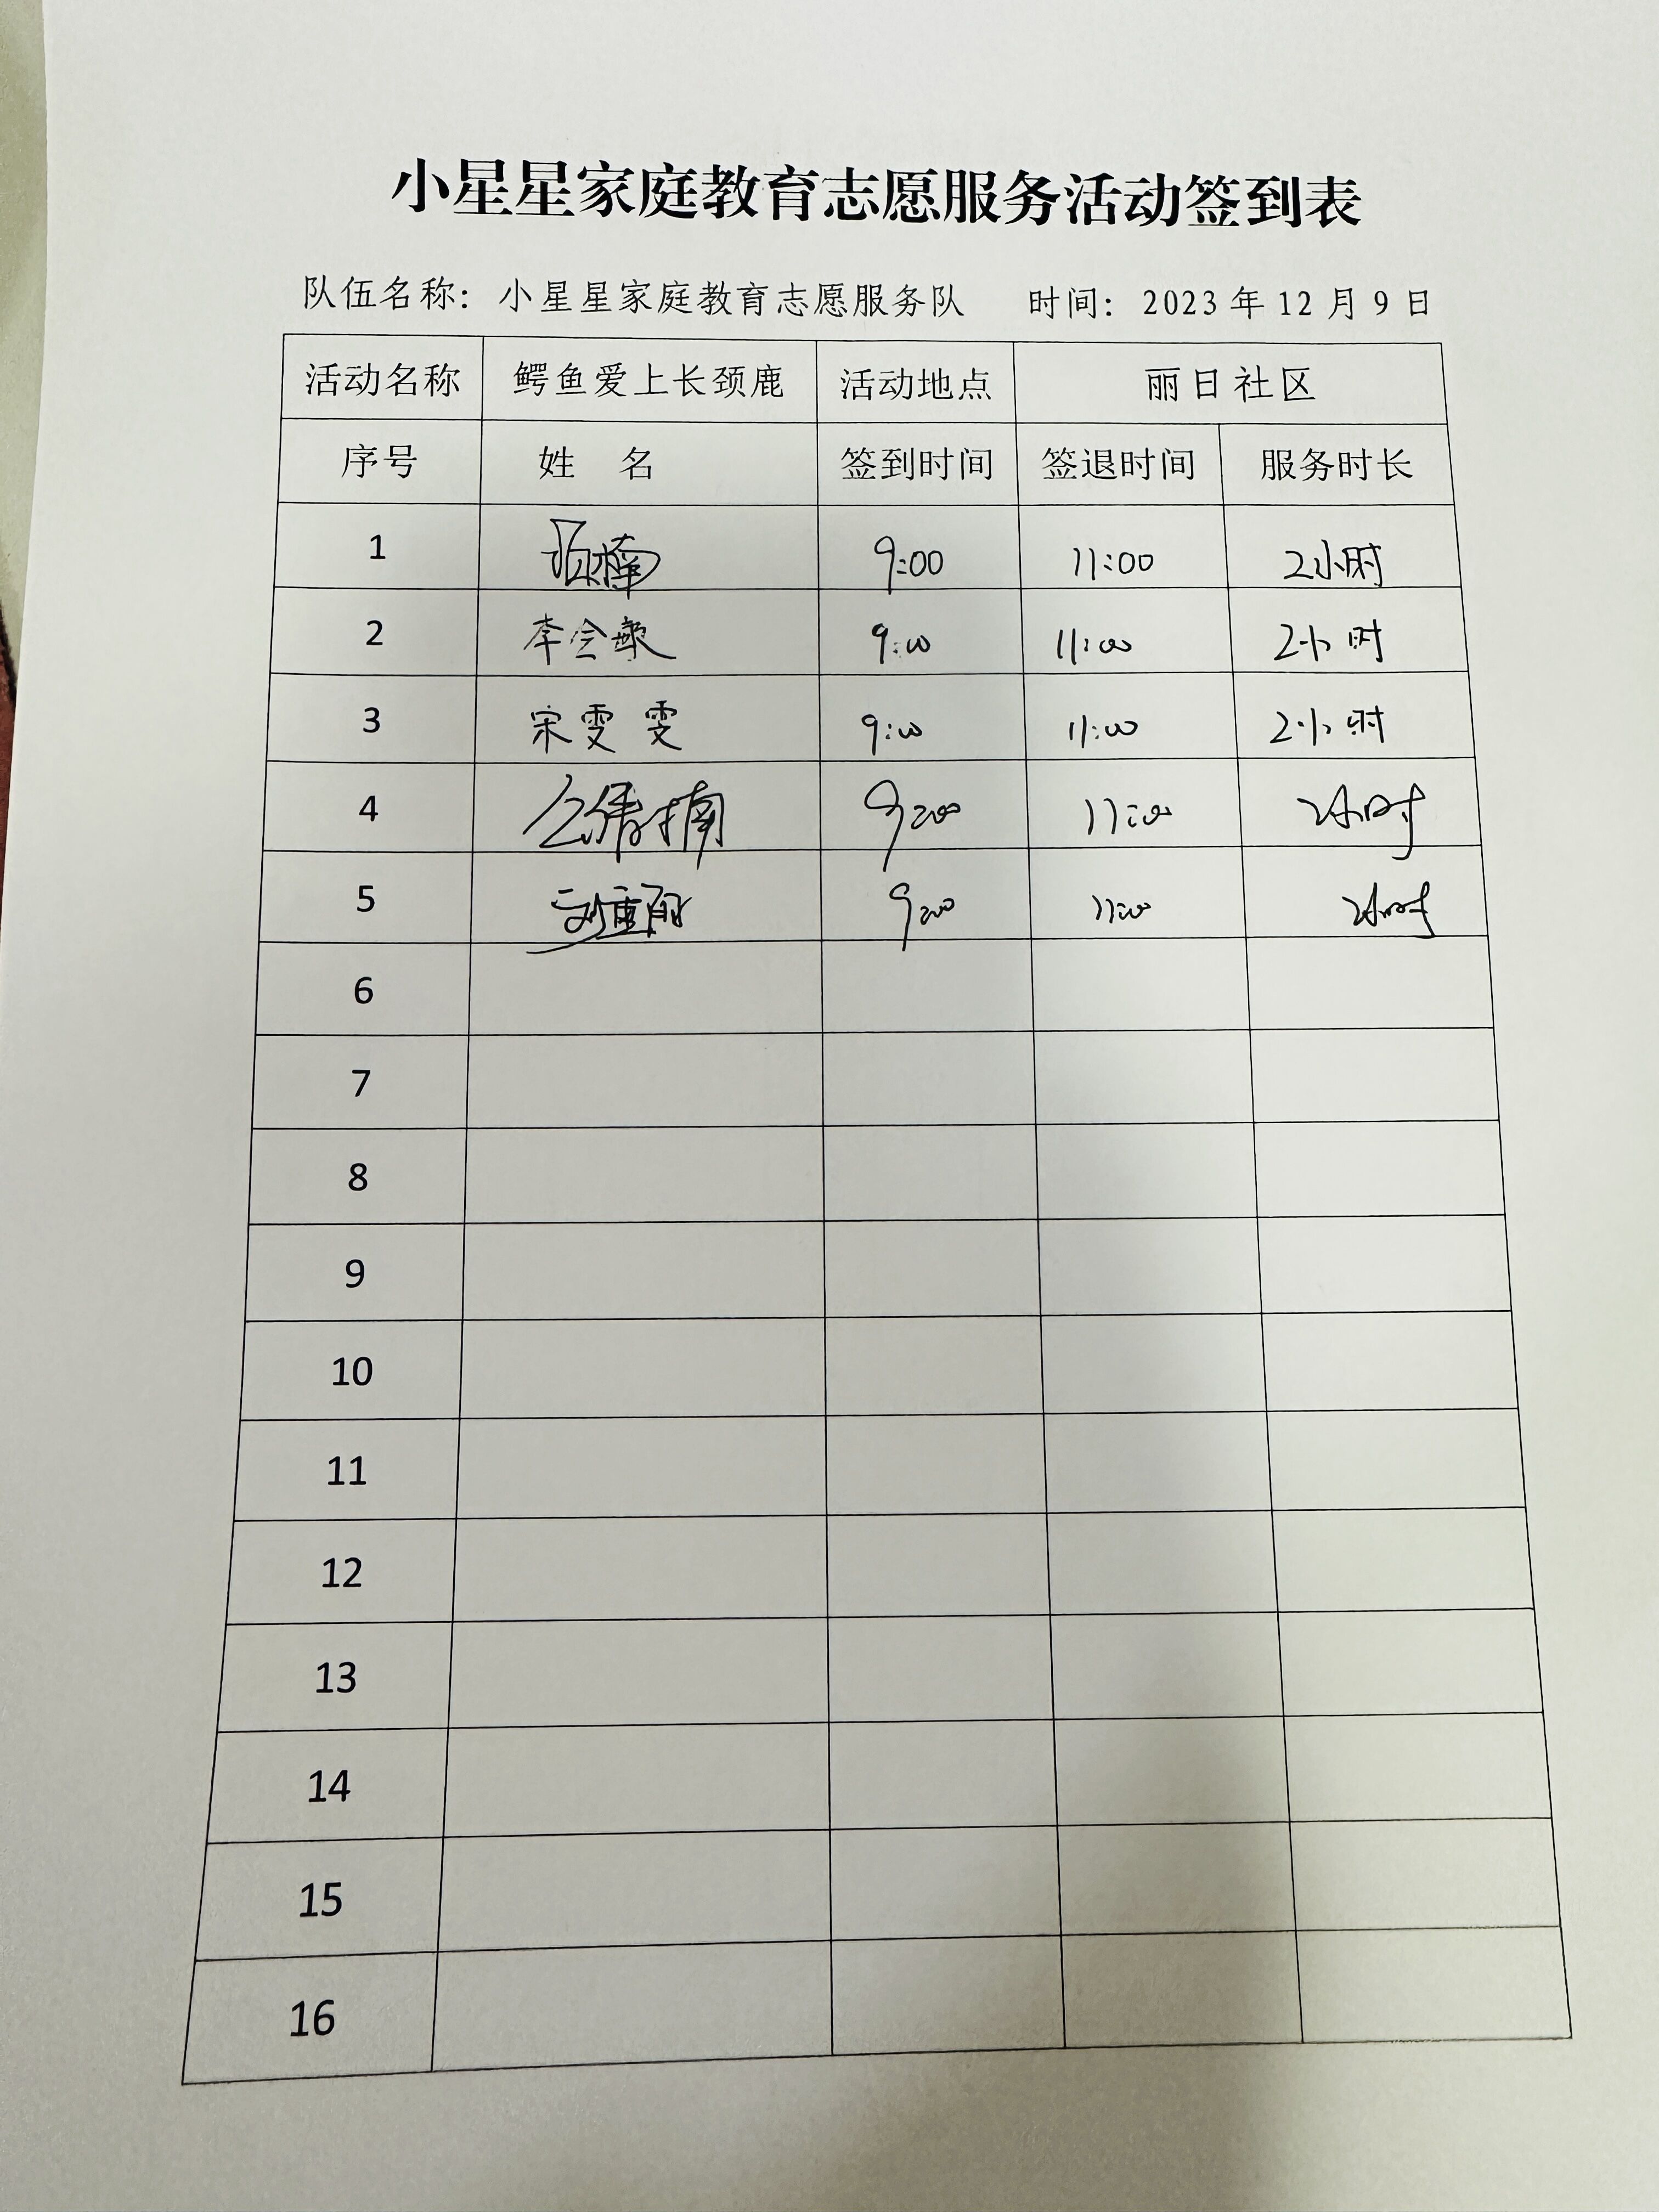 小星星家庭教育志愿服务活动签到表
队伍名称：小星星家庭教育志愿服务队 时间：2023年12月9日
活动名称 鳄鱼爱上长颈鹿 活动地点 丽日社区
序号 姓 名 签到时间 签退时间 服务时长
1 9:00 11:00 2小时
2 李会敏 9:00 11:00 2小时
3 宋雯雯 9:00 11:00 2小时
4 9:00 11:00 2小时
5 9:00 11:00 2小时
6
7
8
9
10
11
12
13
14
15
16